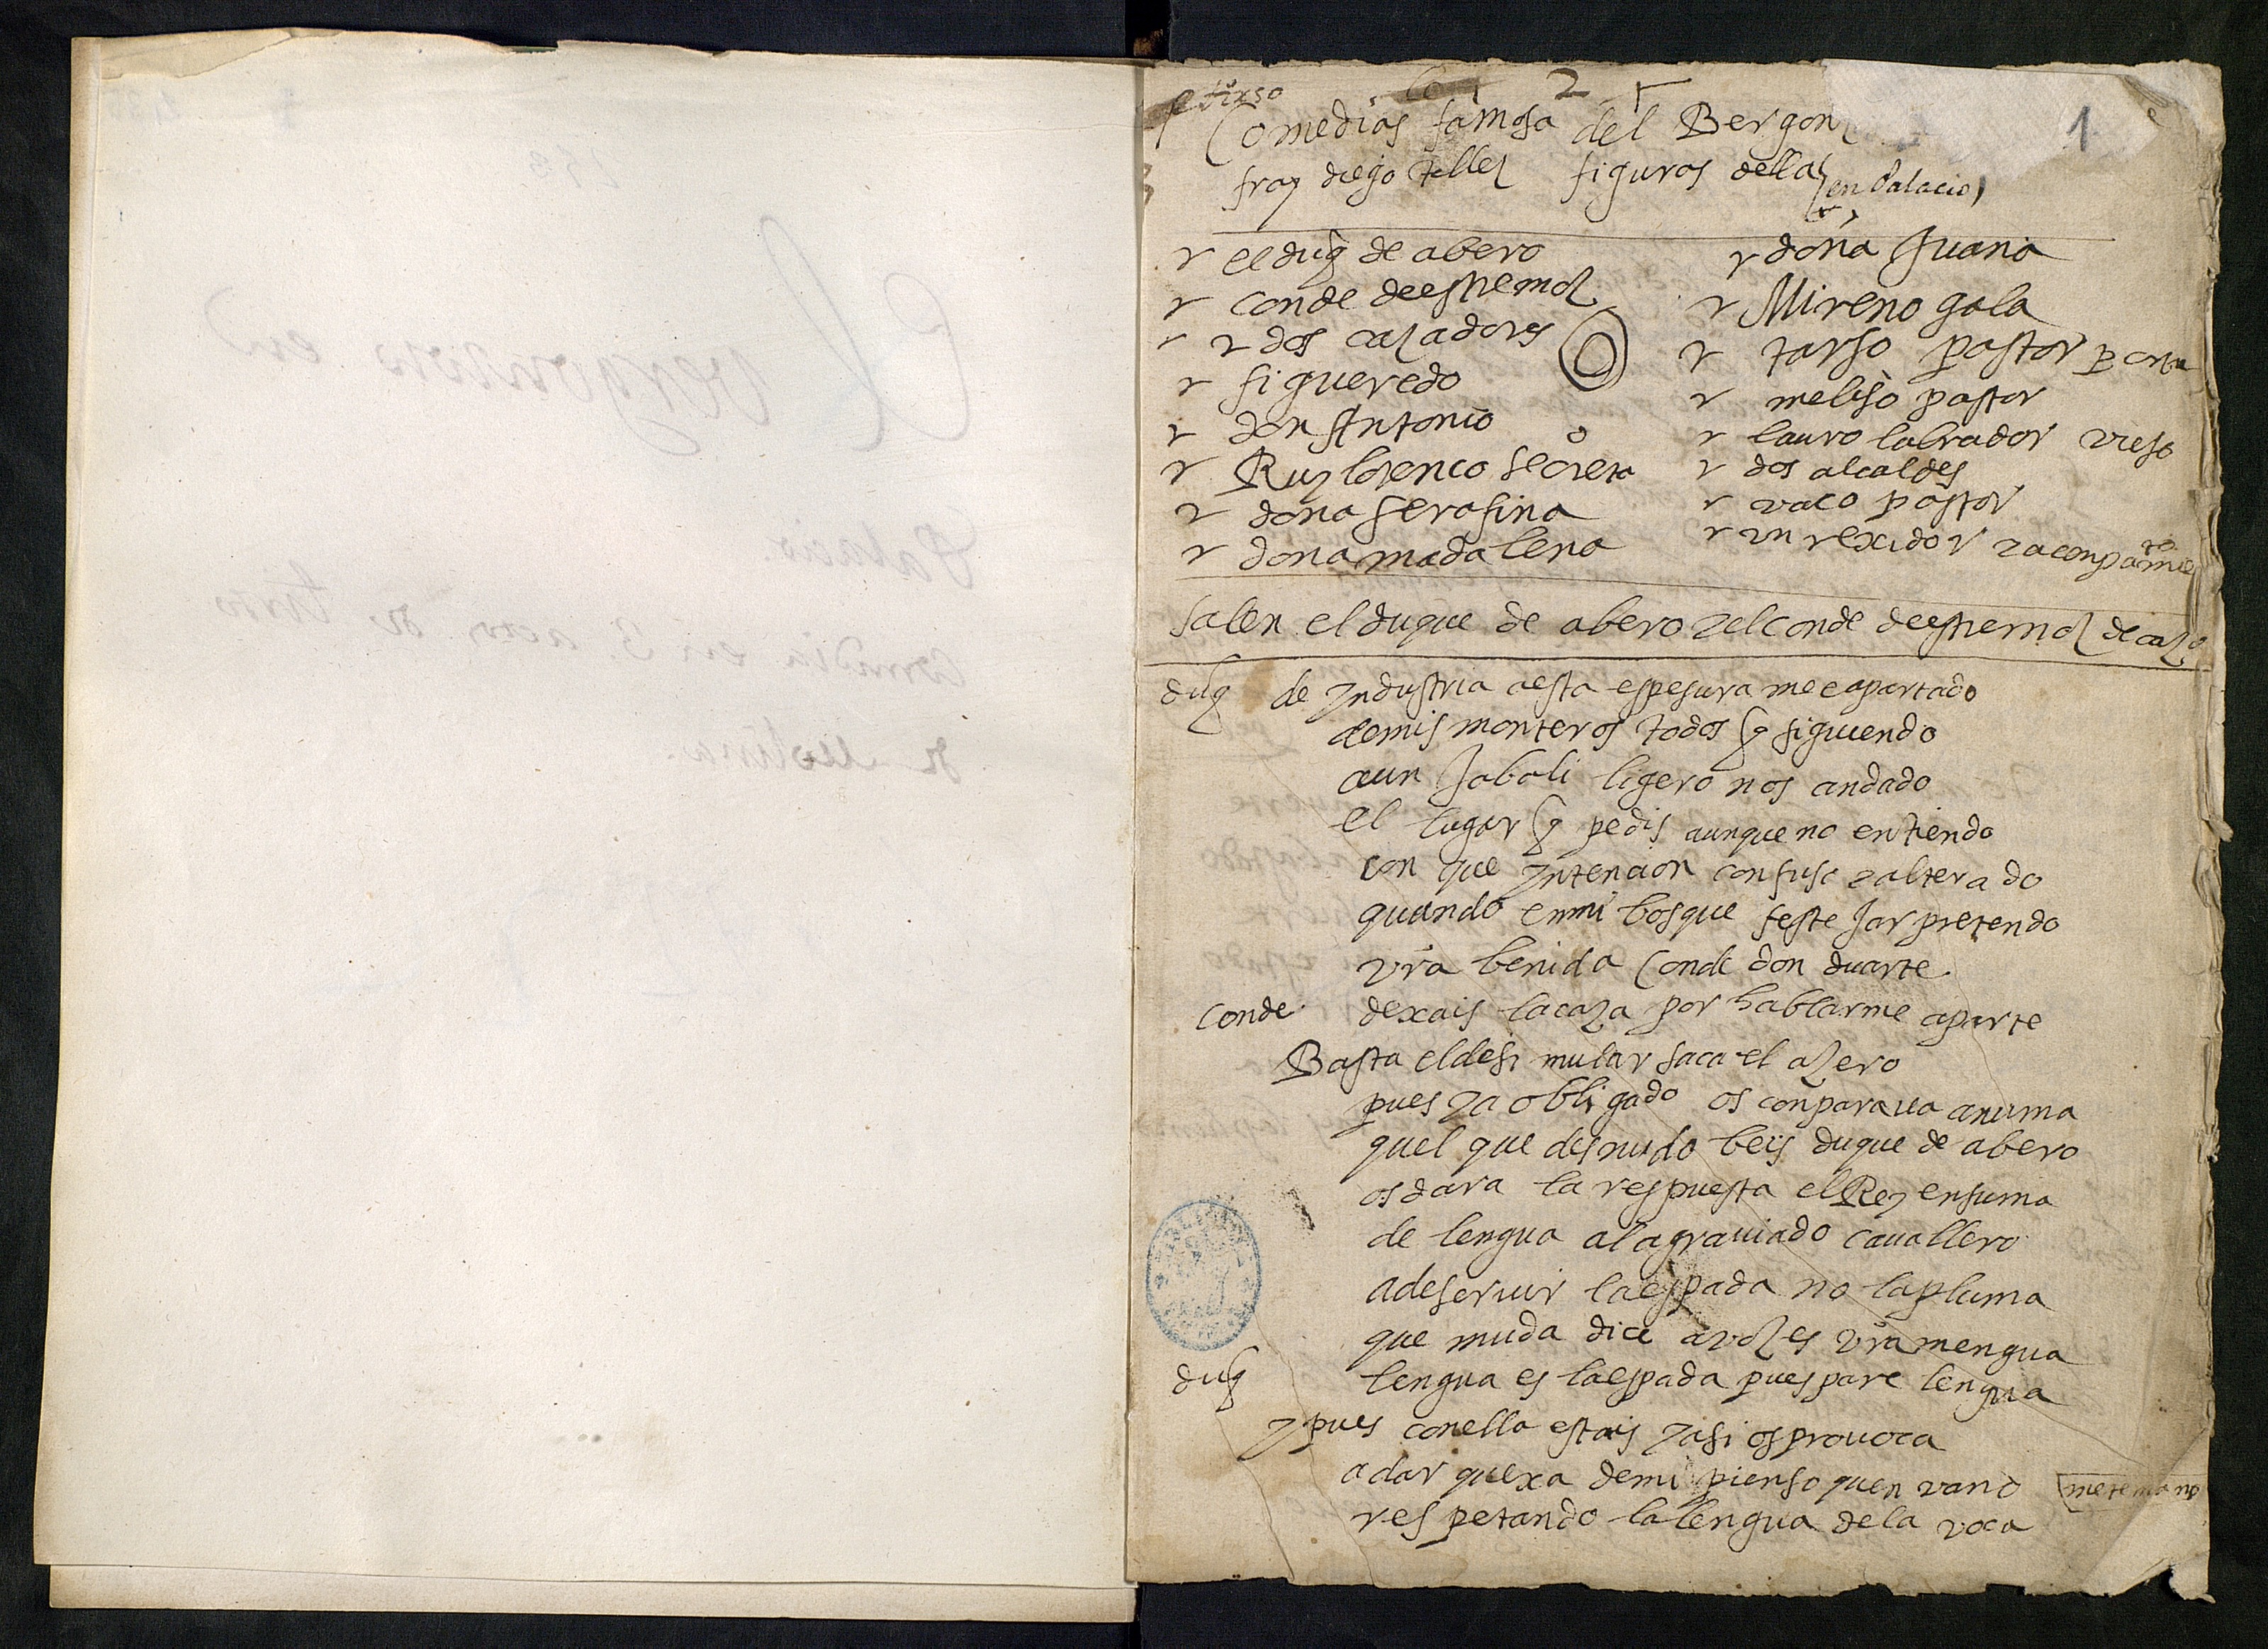 tirso
2
1
Comedias famosa del Bergon
fray diego tellez figuras della
en Palacio
el duq de abero
conde de estremoz
2 dos cazadores
figueredo
don Antonio
Ruy lorenco secreto
dona serafina
dona madalena
doña Juana
Mireno gala
tarso pastor
meliso pastor
lauro labrador viejo
dos alcaldes
vaco pastor
un rexidor y aconpamieto
salen el duque de abero y el conde de estremoz de caza
duq de yndustria a esta espesura me e apartado
de mis monteros todos q siguiendo
a un Jabali ligero nos an dado
el lugar q pedis aunque no entiendo
con que yntencion confuso y alterado
quando en mi bosque festeJar pretendo
vra benida Conde don duarte
dexais la caza por hablarme aparte
conde
Basta el desimular saca el azero
pues ya obligado os conparava a numa
quel que desnudo beis duque de abero
os dara la respuesta el Rey en suma
de lengua al agraviado cavallero
a de servir la espada no la pluma
que muda dice a voz es vra mengua
duq lengua es la espada pues pare lengua
y pues con ella estais y asi os provoca
a dar quexa de mi pienso quen vano
mete mano
respetando la lengua de la voca
El vergonzoso en
Palacio
Comedia en 3 actos de tirso
de Molina